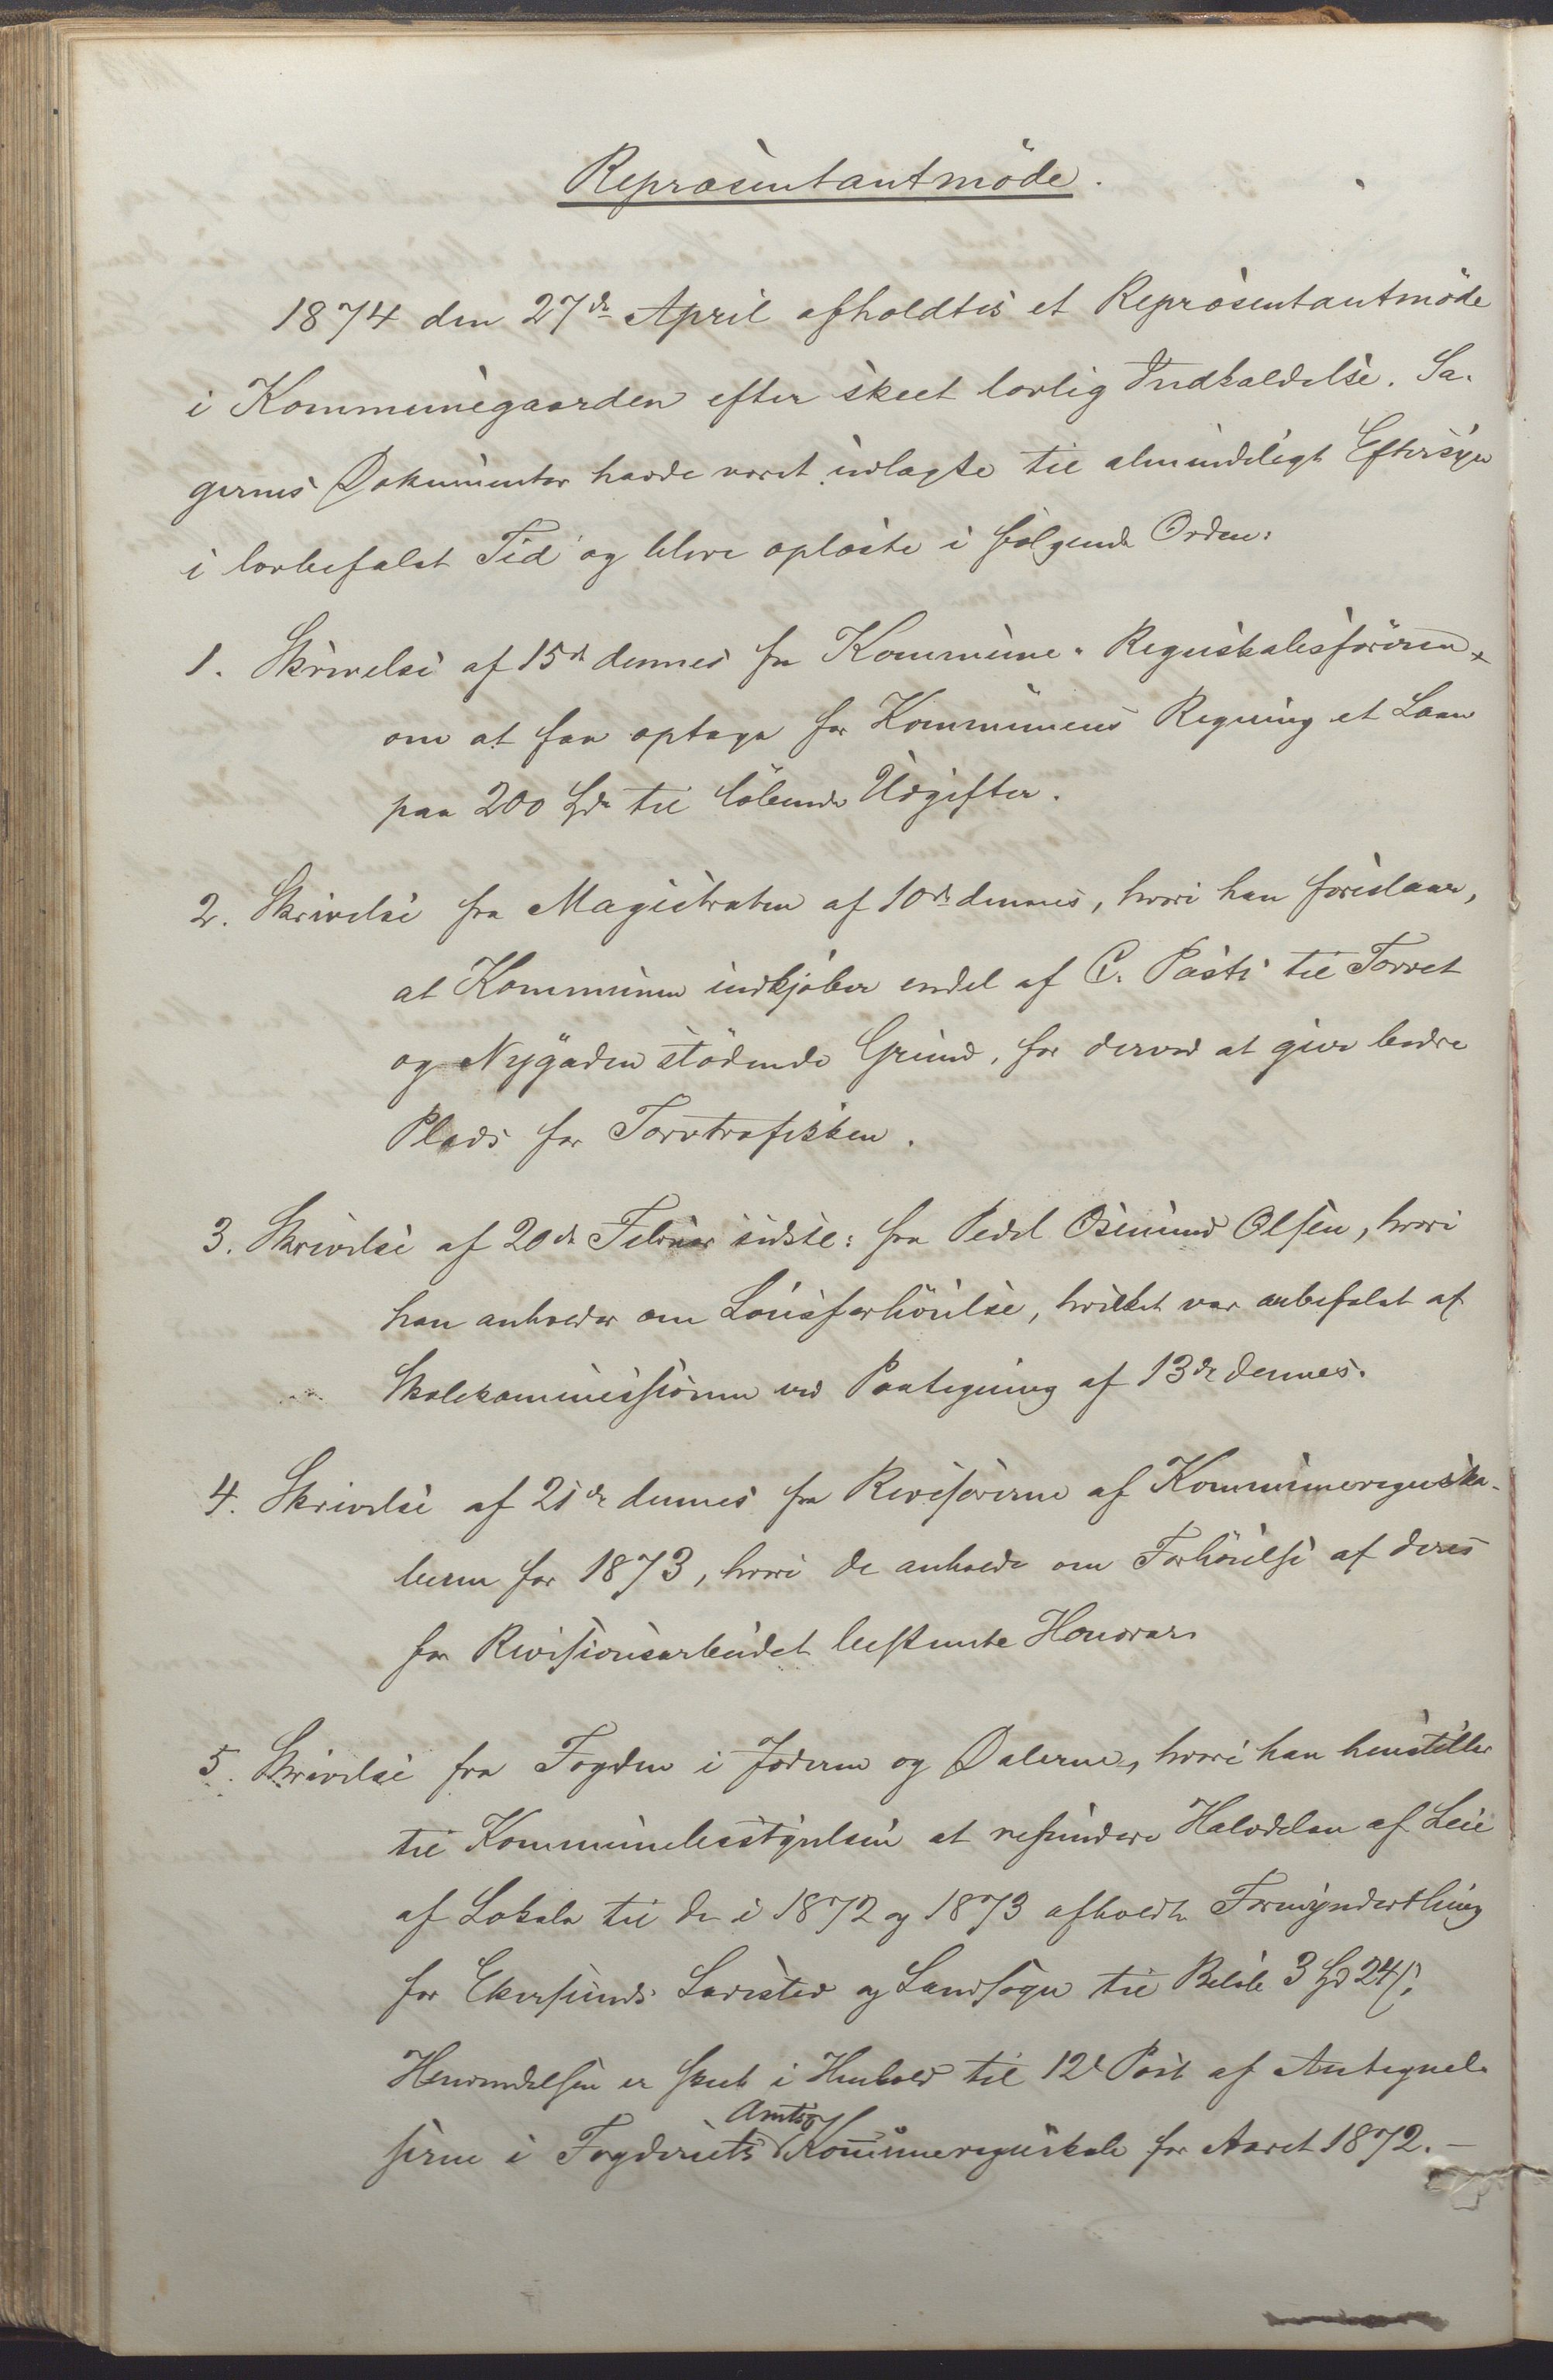 Repræsentantmöde.
1874 den 27de April afholdtes et Repræsentantmöde
i Kommunegaarden efter skeet lovlig Indkaldelse. Sa-
gernes Dokumenter havde været udlagte til almindeligt Eftersyn
i lovbefalet Tid og bleve oplæste i følgende Orden:
1. Skrivelse af 15de dennes fra Kommune-Regnskabsföreren,
om at faa optage for Kommunens Regning et Laan
paa 200 Spd. til löbende Udgifter.
2. Skrivelse fra Magistraten af 10de dennes, hvori han foreslaar,
at Kommunen indkjöber endel af C. Pasts til Torvet
og Nygaden stödende Grund, for derved at give bedre
Plads for Torvtrafikken.
3. Skrivelse af 20de Februar sidstl: fra Pedel Osmund Olsen, hvori
han anholder om Lönsforhöielse, hvilket var anbefalet af
Skolekommissionen ved Paategning af 13de dennes.
4. Skrivelse af 21de dennes fra Revisorerne af Kommuneregnska-
berne for 1873, hvori de anholde om Forhöielse af deres
for Revisionsarbeidet bestemte Honorar.
5. Skrivelse fra Fogden i Jæderen og Dalerne, hvori han henstiller
til Kommunebestyrelsen at refundere Halvdelen af Leie
af Lokale til de i 1872 og 1873 afholdte Formynderthing
for Ekersunds Ladested og Landsogn til Belöb 3 Spd 24 ß.
Henvendelsen er skeet i Henhold til 12te Post af Antegnel-
serne i Fogderiets Amts- Kommuneregnskab for Aaret 1872. —